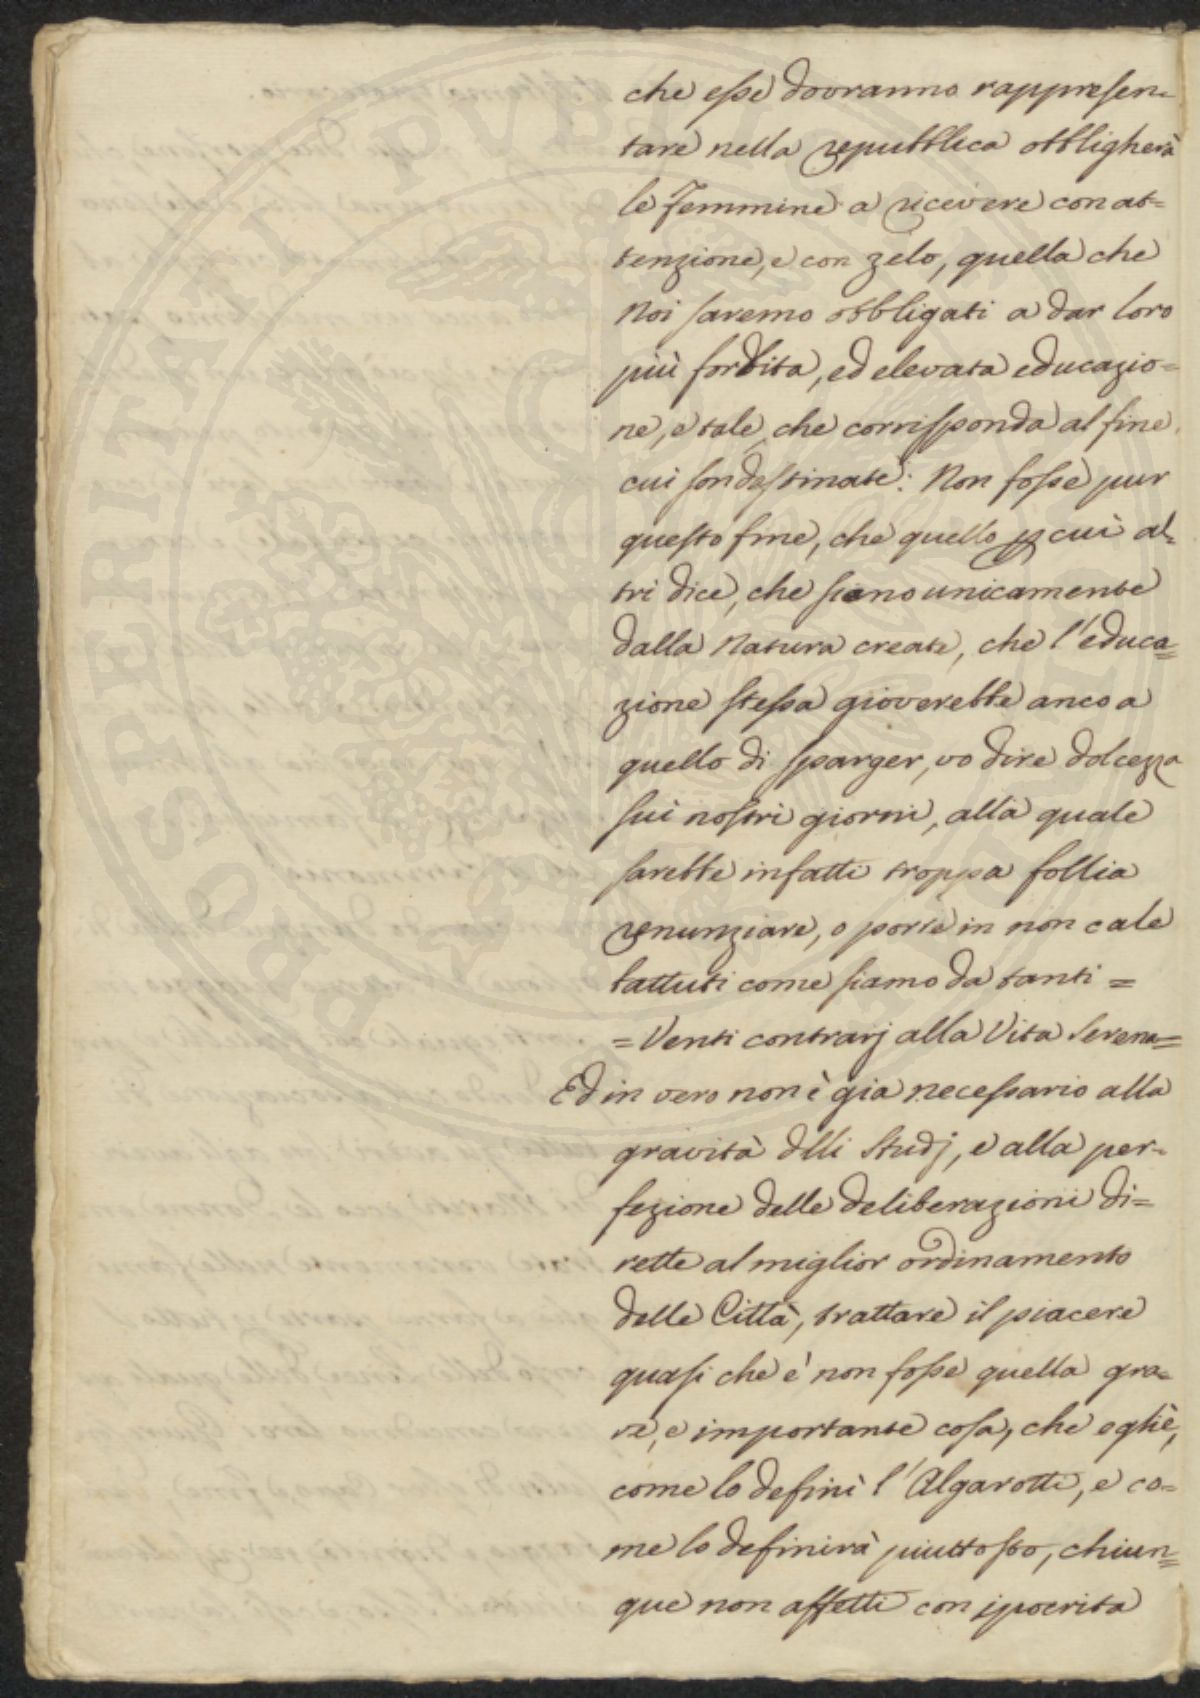 che esse dovranno rappresen-
tare nella repubblica obbligherà
le Femmine a ricevere con at=
tenzione, e con zelo, quella che
Noi saremo obbligati a dar loro
più forbita, ed elevata educazio=
ne, e tale, che corrisponda al fine
cui son destinate: Non fosse pur
questo fine, che quello p cui al-
tri dice, che siano unicamente
dalla Natura create, che l'educa=
zione stessa gioverebbe anco a
quello di sparger, vo dire dolcezza
sui nostri giorni, alla quale
sarebbe infatti troppa follia
renunziare, o porre in non cale
battuti come siamo da tanti =
= Venti contrarj alla Vita Serena=
Ed in vero non è gia necessario alla
gravità dlli Studj, e alla per-
fezione delle deliberazioni di=
rette al miglior ordinamento
delle Città, trattare il piacere
quasi che e' non fosse quella gra-
ve, e importante cosa, che egliè,
come lo definì l'Algarotti, e co-
me lo definirà piuttosto, chiun=
que non affetti con ipocrita
PROSPERITATI PVBLICAE